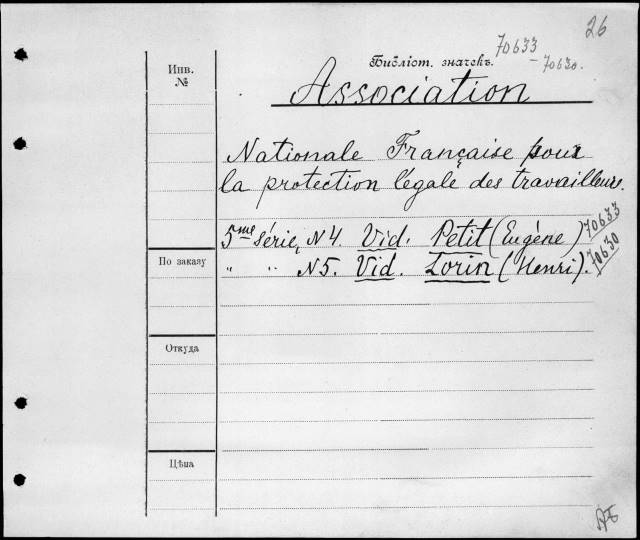 26
70633
Библіот. значекъ.
– 70630.
Инв.
№
Association
Nationale Française pour
la protection légale des travailleurs.
5me série, N 4. Vid. Petit (Eugène) 70633
" " N 5. Vid. Lorin (Henri). 70630
По заказу
Откуда
Цѣна